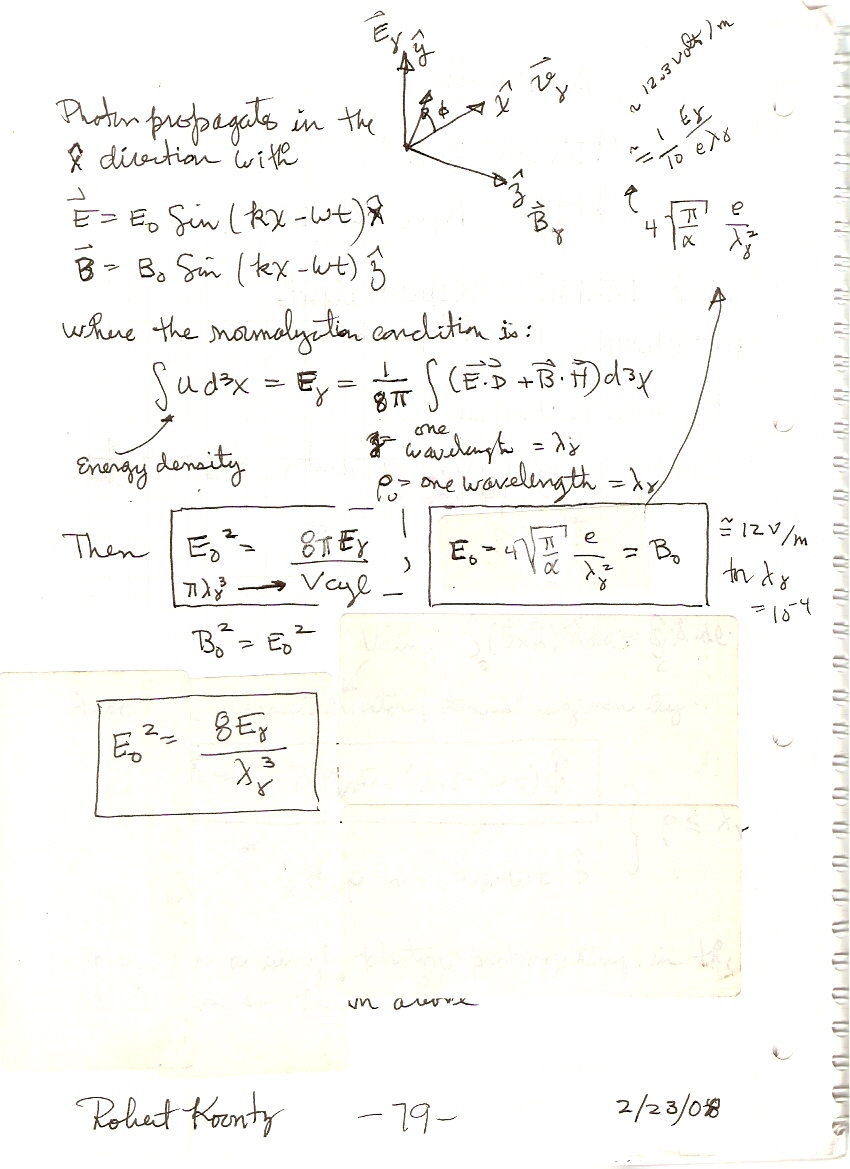 E⃗_γ ŷ
x̂ v⃗_γ
ϕ
ẑ
B⃗_γ
~ 12.3 volts/m
≅ 1/10 E_γ/eλ_γ
4√(π/α) e/λ_γ²
Photon propagates in the
x̂ direction with
E⃗ = E₀ Sin (kx - ωt)
B⃗ = B₀ Sin (kx - ωt) ẑ
where the normalyzation condition is:
∫ U d³x = E_γ = 1/8π ∫ (E⃗·D⃗ + B⃗·H⃗) d³x
Energy density
one wavelength = λ_γ
ρ₀ = one wavelength = λ_γ
Then E₀² = 8πE_γ / Vcyl ; E₀ = 4√(π/α) e/λ_γ² = B₀ ≅ 12 v/m
πλ_γ³ for λ_γ
= 10⁻⁴
B₀² = E₀²
E₀² = 8E_γ / λ_γ³
above
Robert Koontz -79- 2/23/08